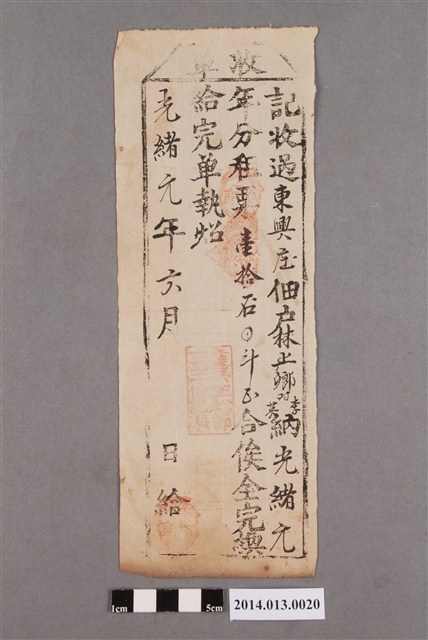 收單
記收過東興庄佃户林光鄉 李 納光緒元
年分租票壹拾石〇斗 合俟全完繳
給完单執炤
光緒元年六月 日給
1cm
5cm
2014.013.0020